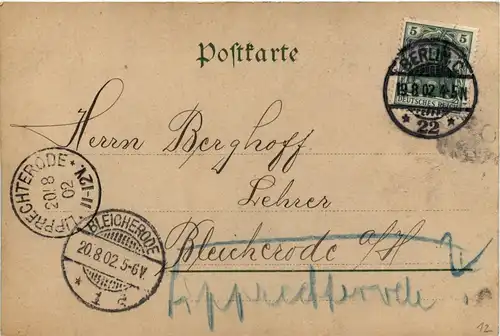 5 5
Postkarte
BERLIN C.
19.8.02.4-5N.
DEUTSCHES REICH
* 22 *
Herrn Berghoff
Lehrer
LIPPRECHTERODE *
20/8
02
11-12V.
BLEICHERODE
20.8.02.5-6V
* 1
Bleicherode a/H
Lipprechterode
12